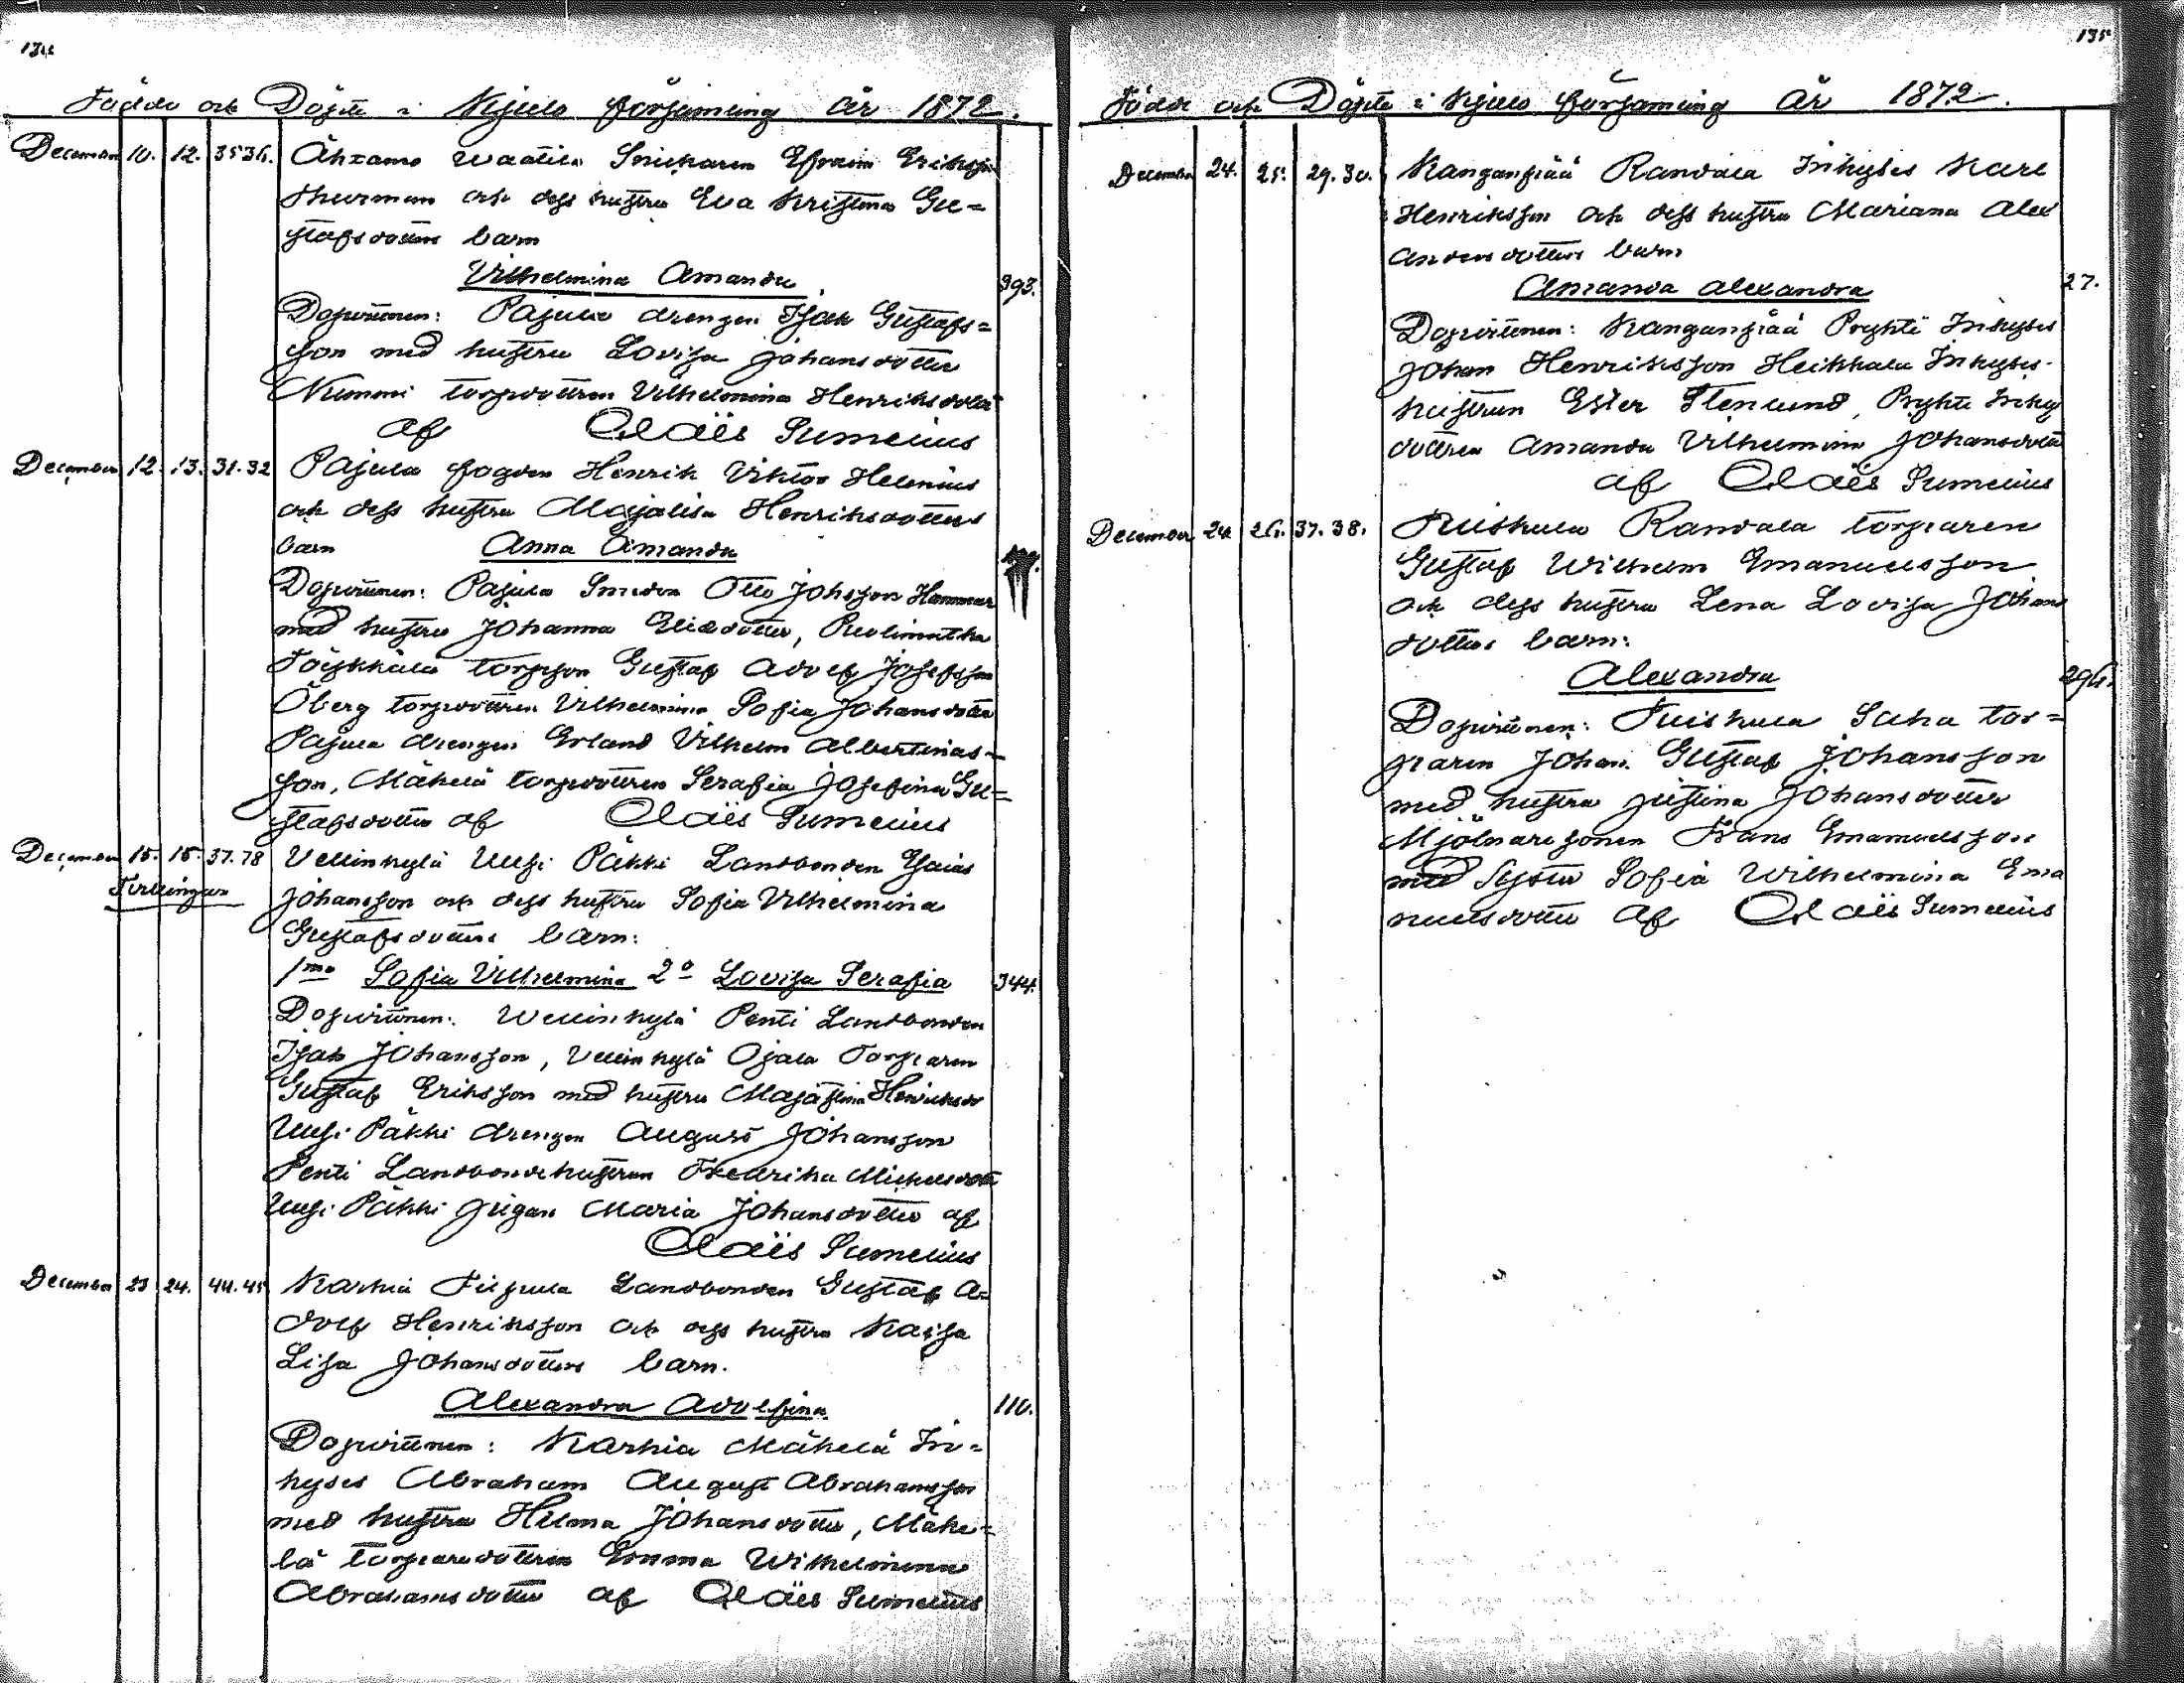 134
Födde och Döpte i Kjulo församling år 1872.
December 10. 12. 35 36. Ähtamo Waatila Snickaren Efraim Eriksson
Thurman och dess hustru Eva Kristina Gu=
stafsdotters barn
Vilhelmina Amanda 393.
Dopvittnen: Pajula drengen Isak Gustafs=
son med hustru Lovisa Johansdotter
Nummi torpdottren Vilhelmina Henriksdotter
af Claës Sumelius
December 12. 13. 31. 32 Pajula fogden Henrik Viktor Helenius
och dess hustru Majalisa Henriksdotters
barn Anna Amanda
Dopvittnen: Pajula Smeden Otto Johsson Hammar
med hustru Johanna Eliedotter,
torpson Gustaf Adolf Josefsson
Öberg torpdottren Vilhelmina Sofia Johansdotter
Pajula drengen Erland Vilhelm Albertinas=
son, Mäkelä torpdottren Serafia Josefina Gu=
stafsdotter af Claës Sumelius
December 15. 15. 37. 78 Vellinkylä Uusi Päkki Landbonden Esaias
Tvillingar Johansson och dess hustru Sofia Vilhelmina
Gustafsdotters barn:
1mo Sofia Vilhelmina 2o Lovisa Serafia 344.
Dopvittnen: Wellinkylä Penti Landbonden
Isak Johansson, Vellinkylä Ojala Torparen
Gustaf Eriksson med hustru Majastina Henriksdr
Uusi Päkki drengen August Johansson
Penti Landbondehustrun Fredrika Michelsdotter
Uusi Päkki pigan Maria Johansdotter af
Claës Sumelius
December 23 24. 44. 45 Karhia Landbonden Gustaf A=
dolf Henriksson och dess hustru Kaisa
Lisa Johansdotters barn.
Alexandra Adolfina 110.
Dopvittnen: Karhia Mäkelä In=
hyses Abraham August Abrahamsson
med hustru Hilma Johansdotter, Mäke=
lä torparedottren Emma Wilhelmina
Abrahamsdotter af Claës Sumelius
135
Födde och Döpte i Kjulo församling År 1872.
December 24. 25. 29. 30. Kanganpää Randala Inhyses Karl
Henriksson och dess hustru Mariana Alex
andersdotters barn
Amanda Alexandra 27.
Dopvittnen: Kanganpää Pryhti Inhyses
Johan Henriksson Heikkala Inhyses
hustrun Ester Stenlund, Pryhti Inhy
dottren Amanda Vilhelmina Johansdotter
af Claës Sumelius
December 24. 26. 37. 38. Randala torparen
Gustaf Wilhelm Emanuelsson
och dess hustru Lena Lovisa Johans
dotters barn:
Alexandra 296.
Dopvittnen: Saha tor=
paren Johan Gustaf Johansson
med hustru Justina Johansdotter
Mjölnaresonen Frans Emanuelsson
med Syster Sofia Wilhelmina Ema
nuelsdotter af Claës Sumelius